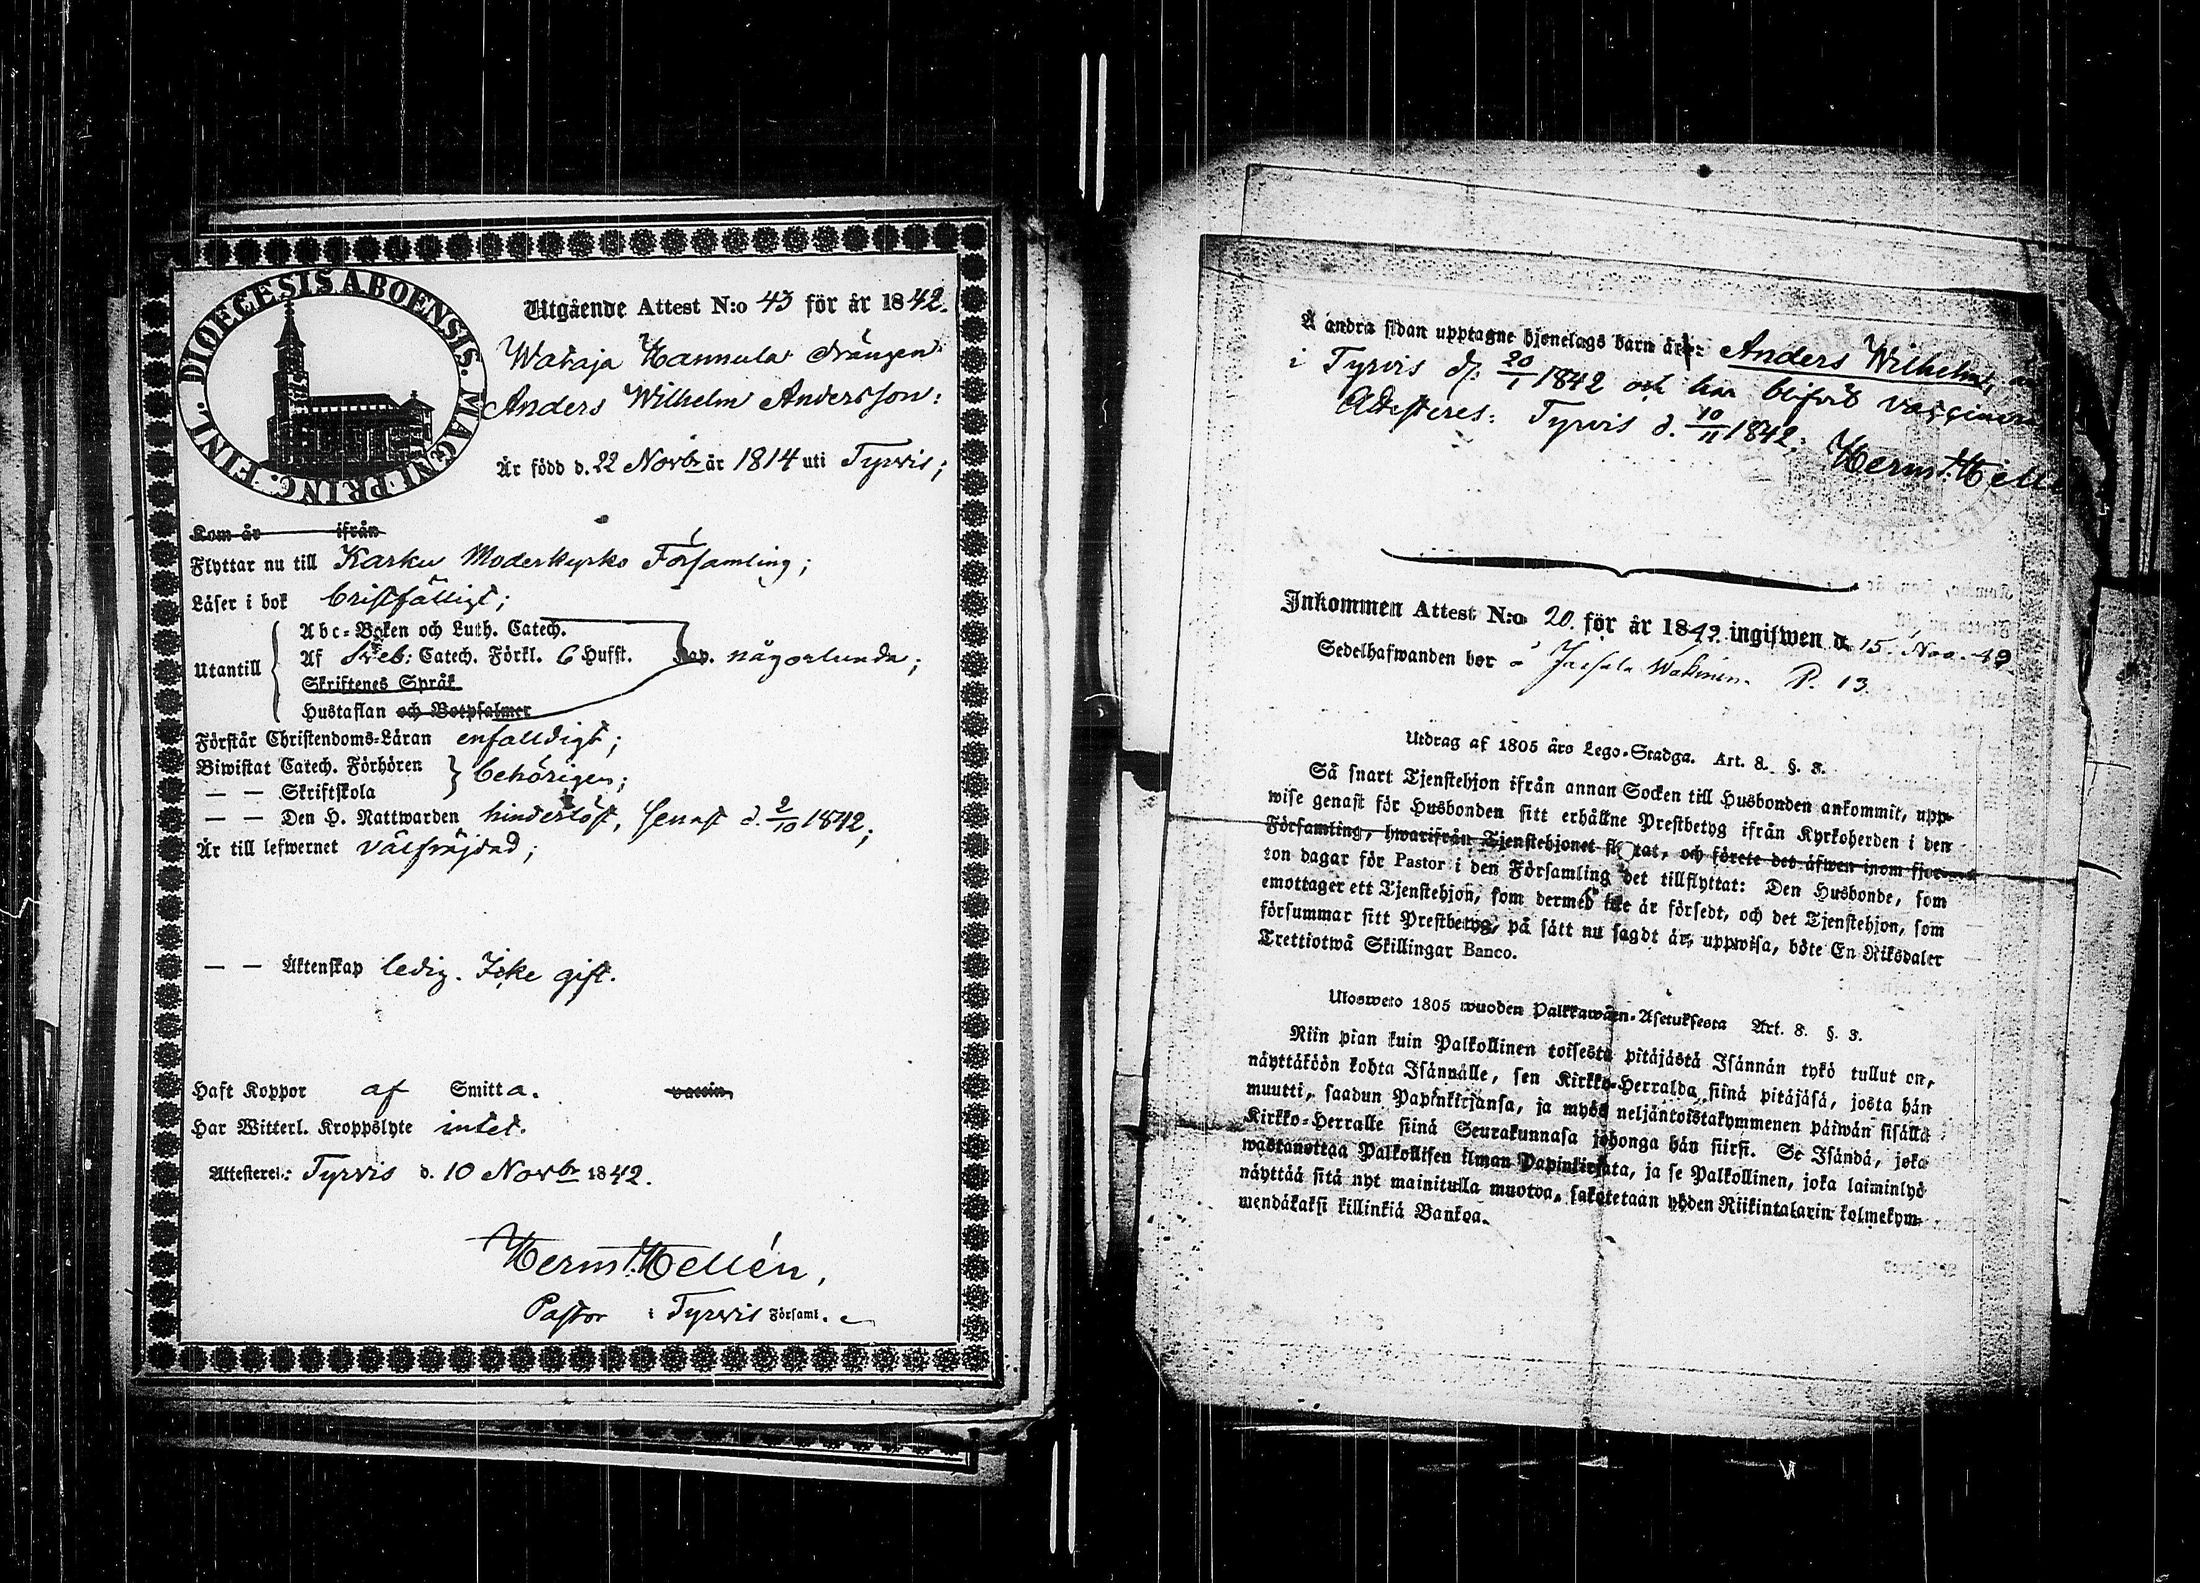 DIOECESIS ABOENSIS. MAGNI PRINC. FINL.
Utgående Attest N:o 43 för år 1842.
Wataja Hannula drängen
Anders Wilhelm Andersson:
Är född d. 22 Novbr år 1814 uti Tyrvis;
Kom år ifrån
Flyttar nu till Karku Moderkyrko Församling;
Läser i bok bristfälligt;
Abc-Boken och Luth. Catech.
Utantill Af Sveb: Catech. Förkl. 6 Hufst. Kap. någorlunda;
Skriftenes Språk
Hustaflan och Botpsalmer
Förstår Christendoms-Läran enfaldigt;
Biwistat Catech. Förhören behörigen;
— — Skriftskola
— — Den H. Nattwarden hinderlöst, senast d. 2/10 1842;
Är till lefwernet välfräjdad;
— — Äktenskap ledig. Icke gift.
Haft Koppor af Smitta. vaccin.
Har Witterl. Kroppslyte intet.
Attesterei.: Tyrvis d. 10 Novbr 1842.
Herm. Hellén,
Pastor i Tyrvis Församl.
Å andra sidan upptagne hjonelags barn är: Anders Wilhelm,
i Tyrvis d. 20/1 1842 och har blifvit
Attesteres: Tyrvis d. 10/11 1842.
Herm. Hell
Inkommen Attest N:o 20. för år 1842. ingifwen d. 15 Nov. 42
Sedelhafwanden bor å P. 13.
Utdrag af 1805 års Lego-Stadga. Art. 8. §. 3.
Så snart Tjenstehjon ifrån annan Socken till Husbonden ankommit, upp-
wise genast för Husbonden sitt erhållne Prestbetyg ifrån Kyrkoherden i den
Församling, hwarifrån Tjenstehjonet flytat, och förete det äfwen inom fjor-
ton dagar för Pastor i den Församling det tillflyttat: Den Husbonde, som
emottager ett Tjenstehjon, som dermed icke är försedt, och det Tjenstehjon, som
försummar sitt Prestbetyg, på sätt nu sagdt är, uppwisa, böte En Riksdaler
Trettiotwå Skillingar Banco.
Ulosweto 1805 wuoden Palkkawäen-Asetuksesta Art. 8. §. 3.
Niin pian kuin Palkollinen toisesta pitäjästä Isännän tykö tullut on,
näyttäköön kohta Isännälle, sen Kirkko-Herralda siinä pitäjäsä, josta hän
muutti, saadun Papinkirjansa, ja myös neljäntoistakymmenen päiwän sisällä
Kirkko-Herralle siinä Seurakunnasa johonga hän siirsi. Se Isändä, joka
wastanottaa Palkollisen ilman Papinkirjata, ja se Palkollinen, joka laiminlyö
näyttää sitä nyt mainitulla muotoa, sakotetaan yhden Riikintalarin kolmekym-
mendäkaksi killinkiä Bankoa.